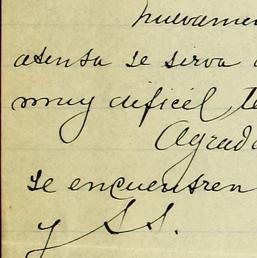 nuevamen
atenta se sirva
muy dificil te
Agrad
se encuentren
y SS.